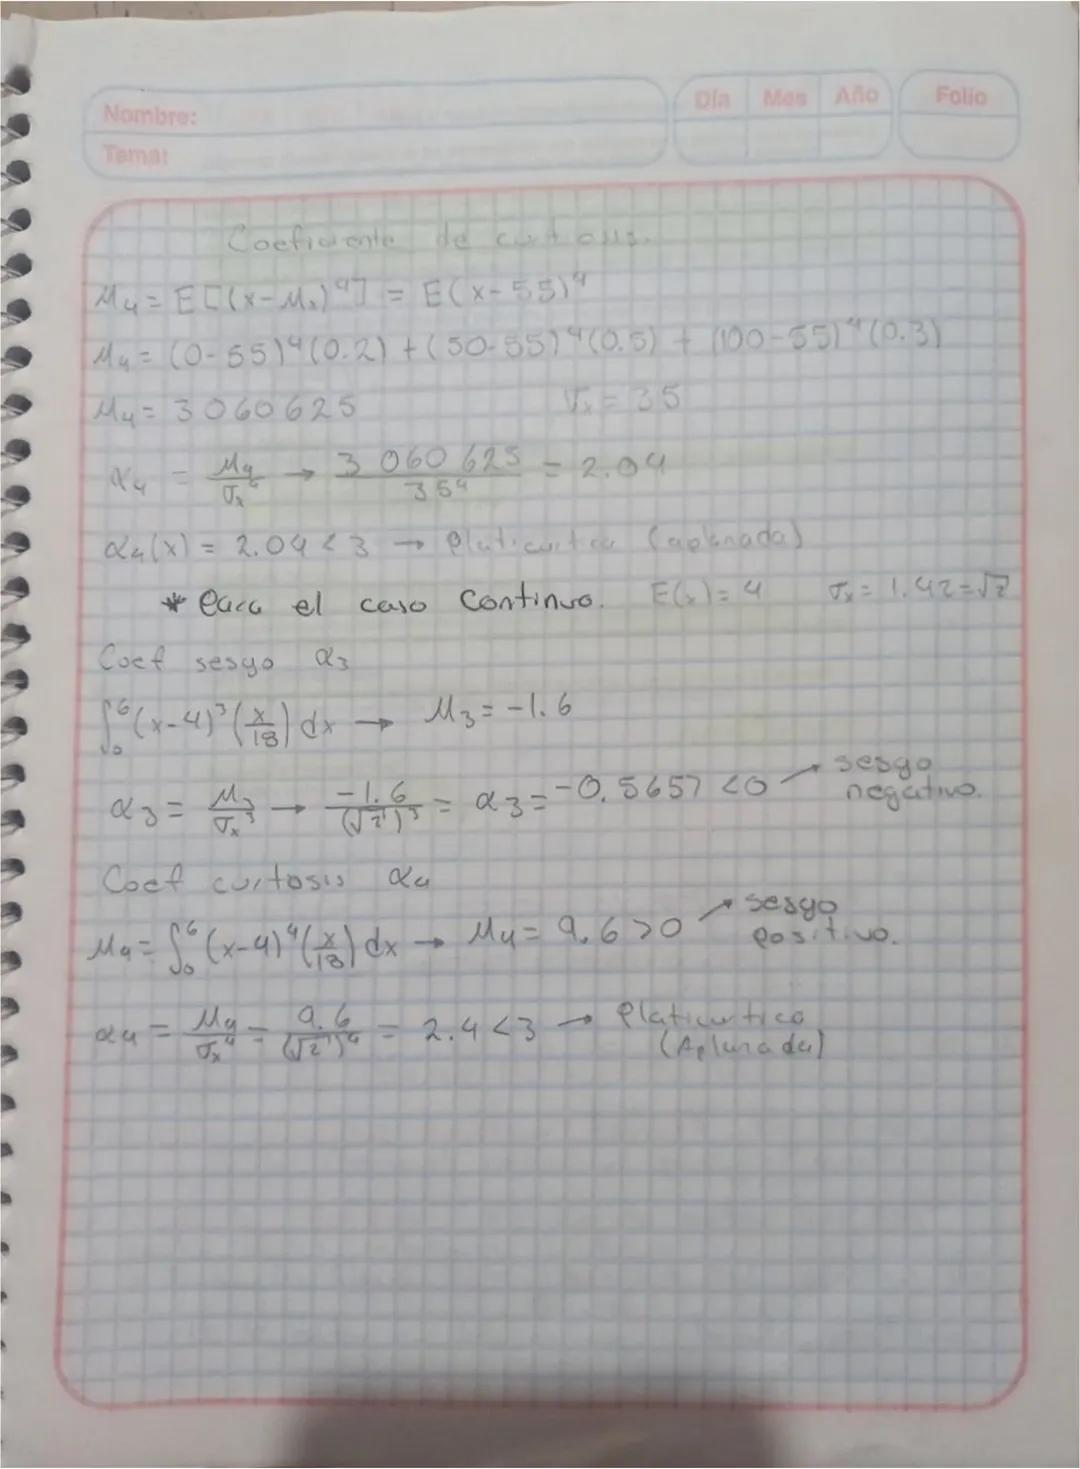 Nombre:
Día Mes Año
Folio
Tema:
Coeficiente de curtosis.
μ₄ = E[(x-μₓ)⁴] = E(x-55)⁴
μ₄ = (0-55)⁴(0.2) + (50-55)⁴(0.5) + (100-55)⁴(0.3)
μ₄ = 3060625 σₓ = 35
α₄ = μ₄/σₓ⁴ → 3 060 625/35⁴ = 2.04
α₄(x) = 2.04 < 3 → Platicurtica (aplanada)
* Para el caso Continuo. E(x) = 4 σₓ = 1.42 = √2
Coef sesgo α₃
∫₀⁶ (x-4)³ (x/18) dx → μ₃ = -1.6
α₃ = μ₃/σₓ³ → -1.6/(√2)³ = α₃ = -0.5657 < 0 → sesgo negativo.
Coef curtosis α₄
μ₄ = ∫₀⁶ (x-4)⁴ (x/18) dx → μ₄ = 9.6 > 0 → sesgo positivo.
α₄ = μ₄/σₓ⁴ = 9.6/(√2)⁴ = 2.4 < 3 → Platicurtica (Aplanada)